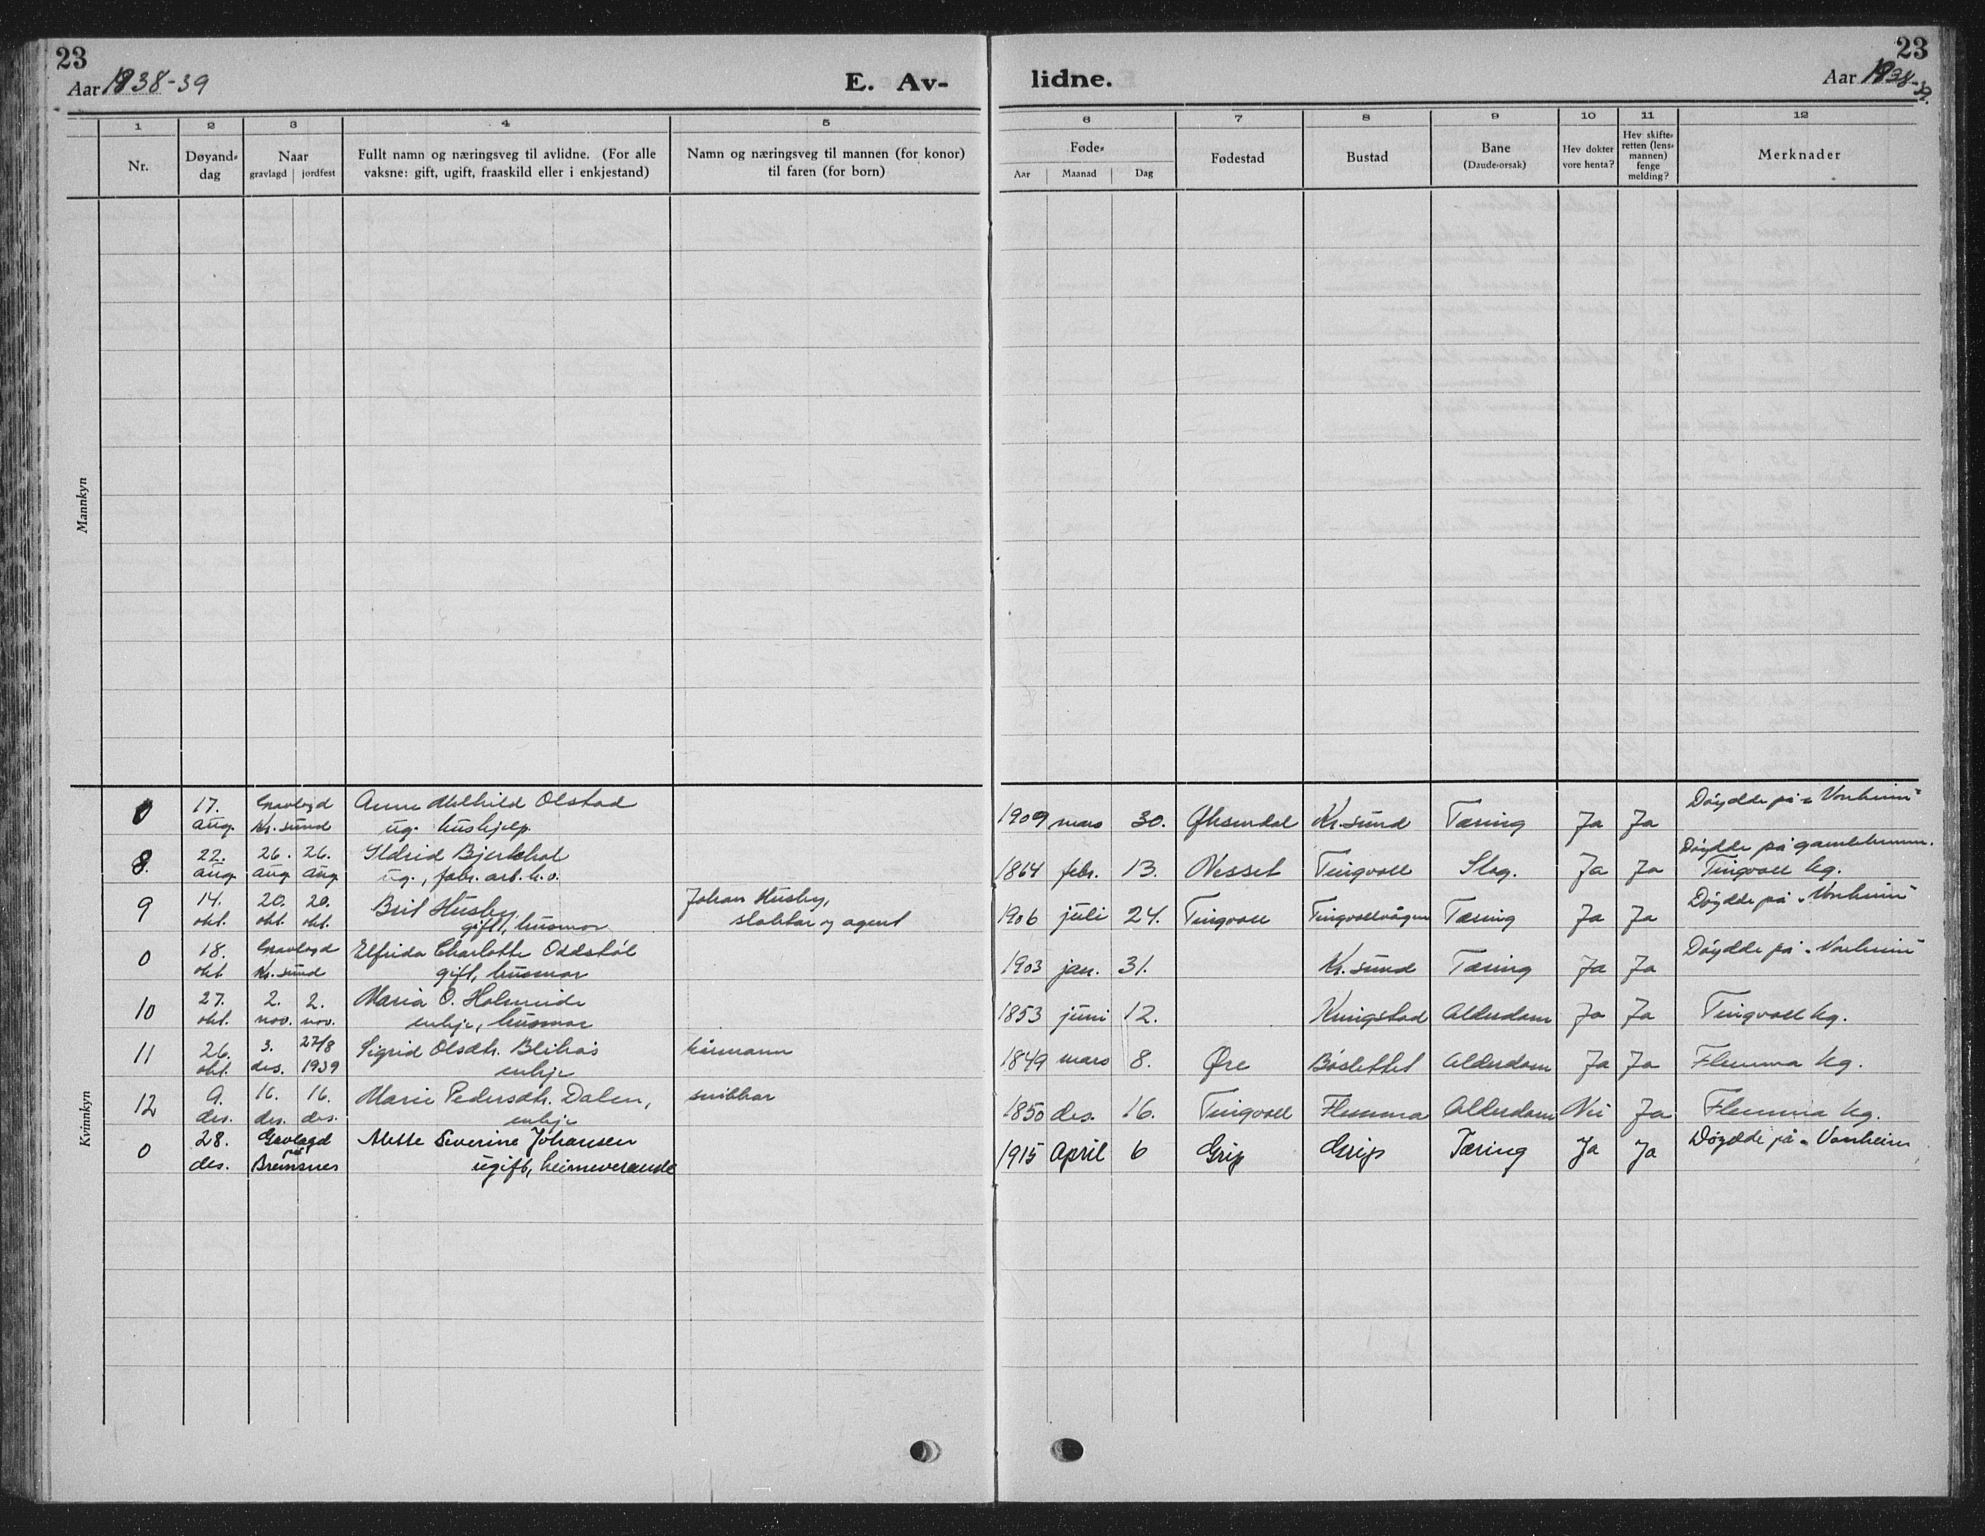 23
23
Aar 1938-39
E. Av-
lidne.
Aar 1938-39.
1 2 3 4 5 6 7 8 9 10 11 12
Nr.
Døyand-
dag
Naar
gravlagd jordfest
Fullt namn og næringsveg til avlidne. (For alle
vaksne: gift, ugift, fraaskild eller i enkjestand)
Namn og næringsveg til mannen (for konor)
til faren (for born)
Føde-
Aar Maanad Dag
Fødestad
Bustad
Bane
(Daude-orsak)
Hev dokter
vore henta?
Hev skifte-
retten (lens-
mannen)
fenge
melding?
Merknader
Mannkyn
Kvinnkyn
0 17. Gravlagd Anne Olstad 1909 mars 30. Øksendal Kr.sund Tæring Ja Ja Døydde på „Vonheim"
aug. Kr. sund ug. hushjelp.
8. 22. 26. 26. Ildrid Bjerkhol 1864 febr. 13. Nesset Tingvoll Slag. Ja Ja Døydde på gamleheimen.
aug. aug. aug. ug., fabr. arb. h.v. Tingvoll kg.
9 14. 20. 20. Brit Husby, Johan Husby, 1906 juli 24. Tingvoll Tingvollvågen Tæring Ja Ja Døydde på „Vonheim"
okt. okt. okt. gift, husmor og agent
0 18. Gravlagd Elfrida Charlotte Oddstøl 1903 jan. 31. Kr.sund Tæring Ja Ja Døydde på „Vonheim"
okt Kr. sund gift, husmor
10 27. 2. 2. Maria O. Holmeide 1853 juni 12. Kringstad Alderdom Ja Ja Tingvoll kg.
okt. nov. nov. enkje, husmor
11 26. 3. 27/8 Sigrid Olsdtr. Blikås kårmann 1849 mars 8. Øre Bøslettet Alderdom Ja Ja Flemma kg.
okt. des. 1939 enkje
12 9. 16. 16. Marie Pedersdtr. Dalen, snikkar 1850 des. 16. Tingvoll Flemma Alderdom Nei Ja Flemma kg.
des. des. des. enkje
0 28. Gravlagd Mette Severine Johansen 1915 April 6 Grip Grip Tæring Ja Ja Døydde på „Vonheim
des. på Bremsnes ugift, heimeverande